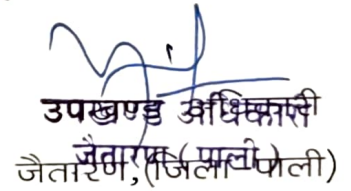 उपखण्ड अधिकारी
जैतारण (पाली)
जैतारण, (जिला-पाली)